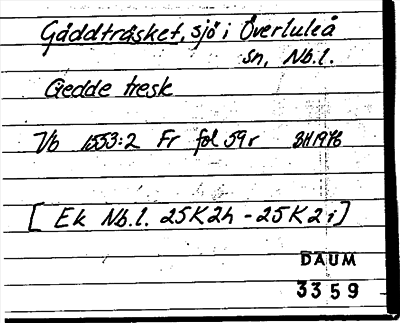 Gäddträsket, sjö i Överluleå
sn, Nb.l.
Gedde tresk
Vb 1553:2 Fr fol 59r BH 1976
[Ek Nb.l. 25K2h - 25K2i]
DAUM
3359